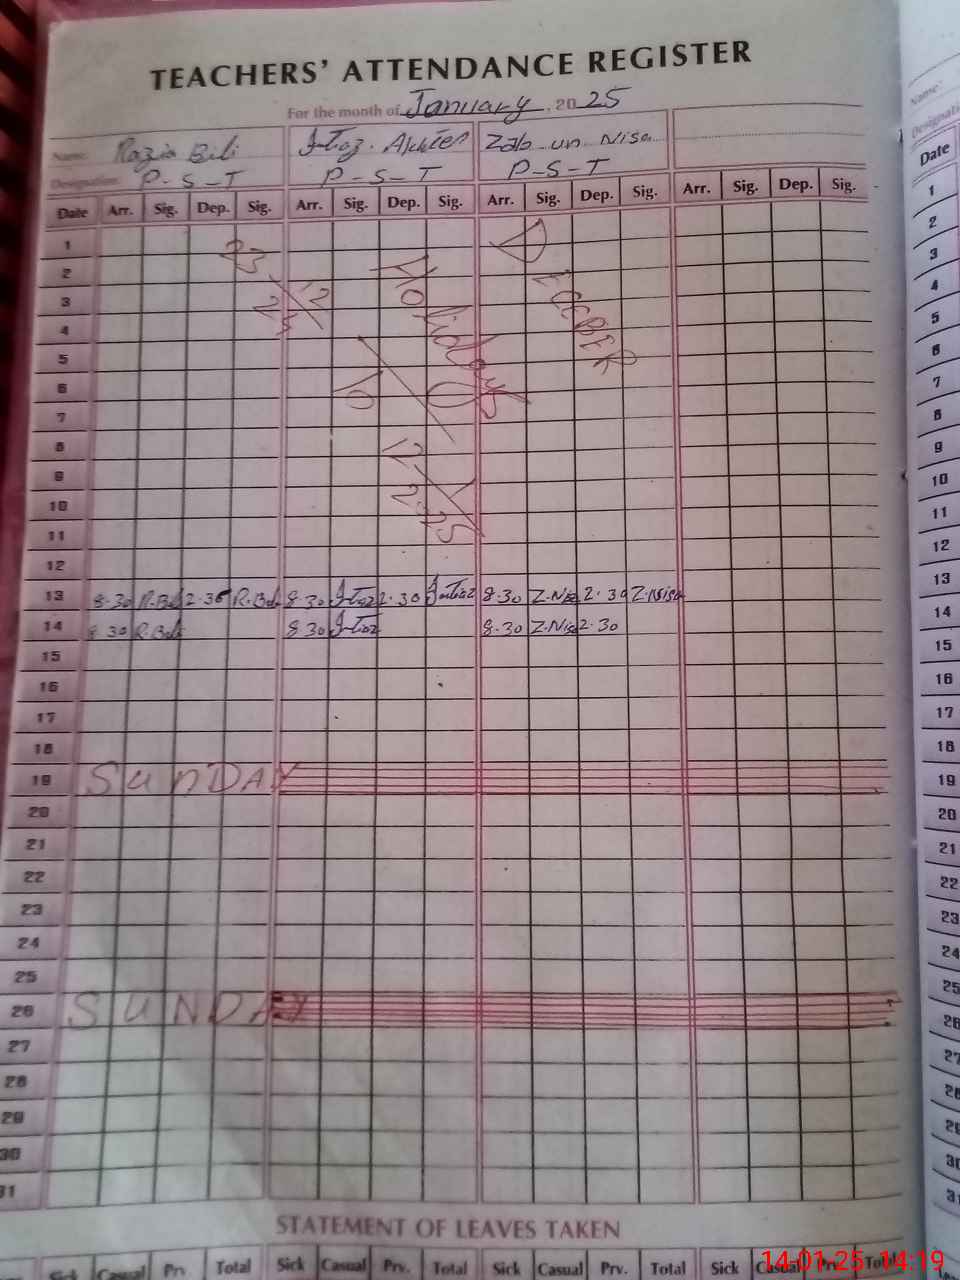 TEACHERS' ATTENDANCE REGISTER
For the month of January, 2025
Name: Razia Bibi I-tiaz. Akhter Zab un Nisa
Designation P-S-T P-S-T P-S-T
Date Arr. Sig. Dep. Sig. Arr. Sig. Dep. Sig. Arr. Sig. Dep. Sig. Arr. Sig. Dep. Sig.
1
2
3
4
5
6
7
8
9
10
11
12
23
12
25
To
Holidays
12-
2025
13 8.30 R.Bibi 2.30 R.Bibi 8 30 I-tiaz 2.30 8.30 Z.Nisa 2.30 Z.Nisa
14 8 30 R.Bibi 8 30 I-tiaz 8.30 Z.Nisa 2.30
15
16
17
18
19 SUNDAY
20
21
22
23
24
25
26 SUNDAY
27
28
29
30
31
STATEMENT OF LEAVES TAKEN
Sick Casual Prv. Total Sick Casual Prv. Total Sick Casual Prv. Total Sick Casual Prv. Total
14-01-25 14:19
Name:
Designati
Date
1
2
3
4
5
6
7
8
9
10
11
12
13
14
15
16
17
18
19
20
21
22
23
24
25
26
27
28
29
30
31